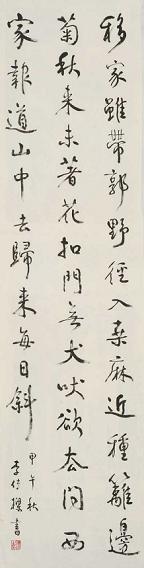 移家雖帶郭野徑入桑麻近種籬邊
菊秋来未著花扣門無犬吠欲去問西
家報道山中去歸来每日斜
甲午秋
李傳揆書